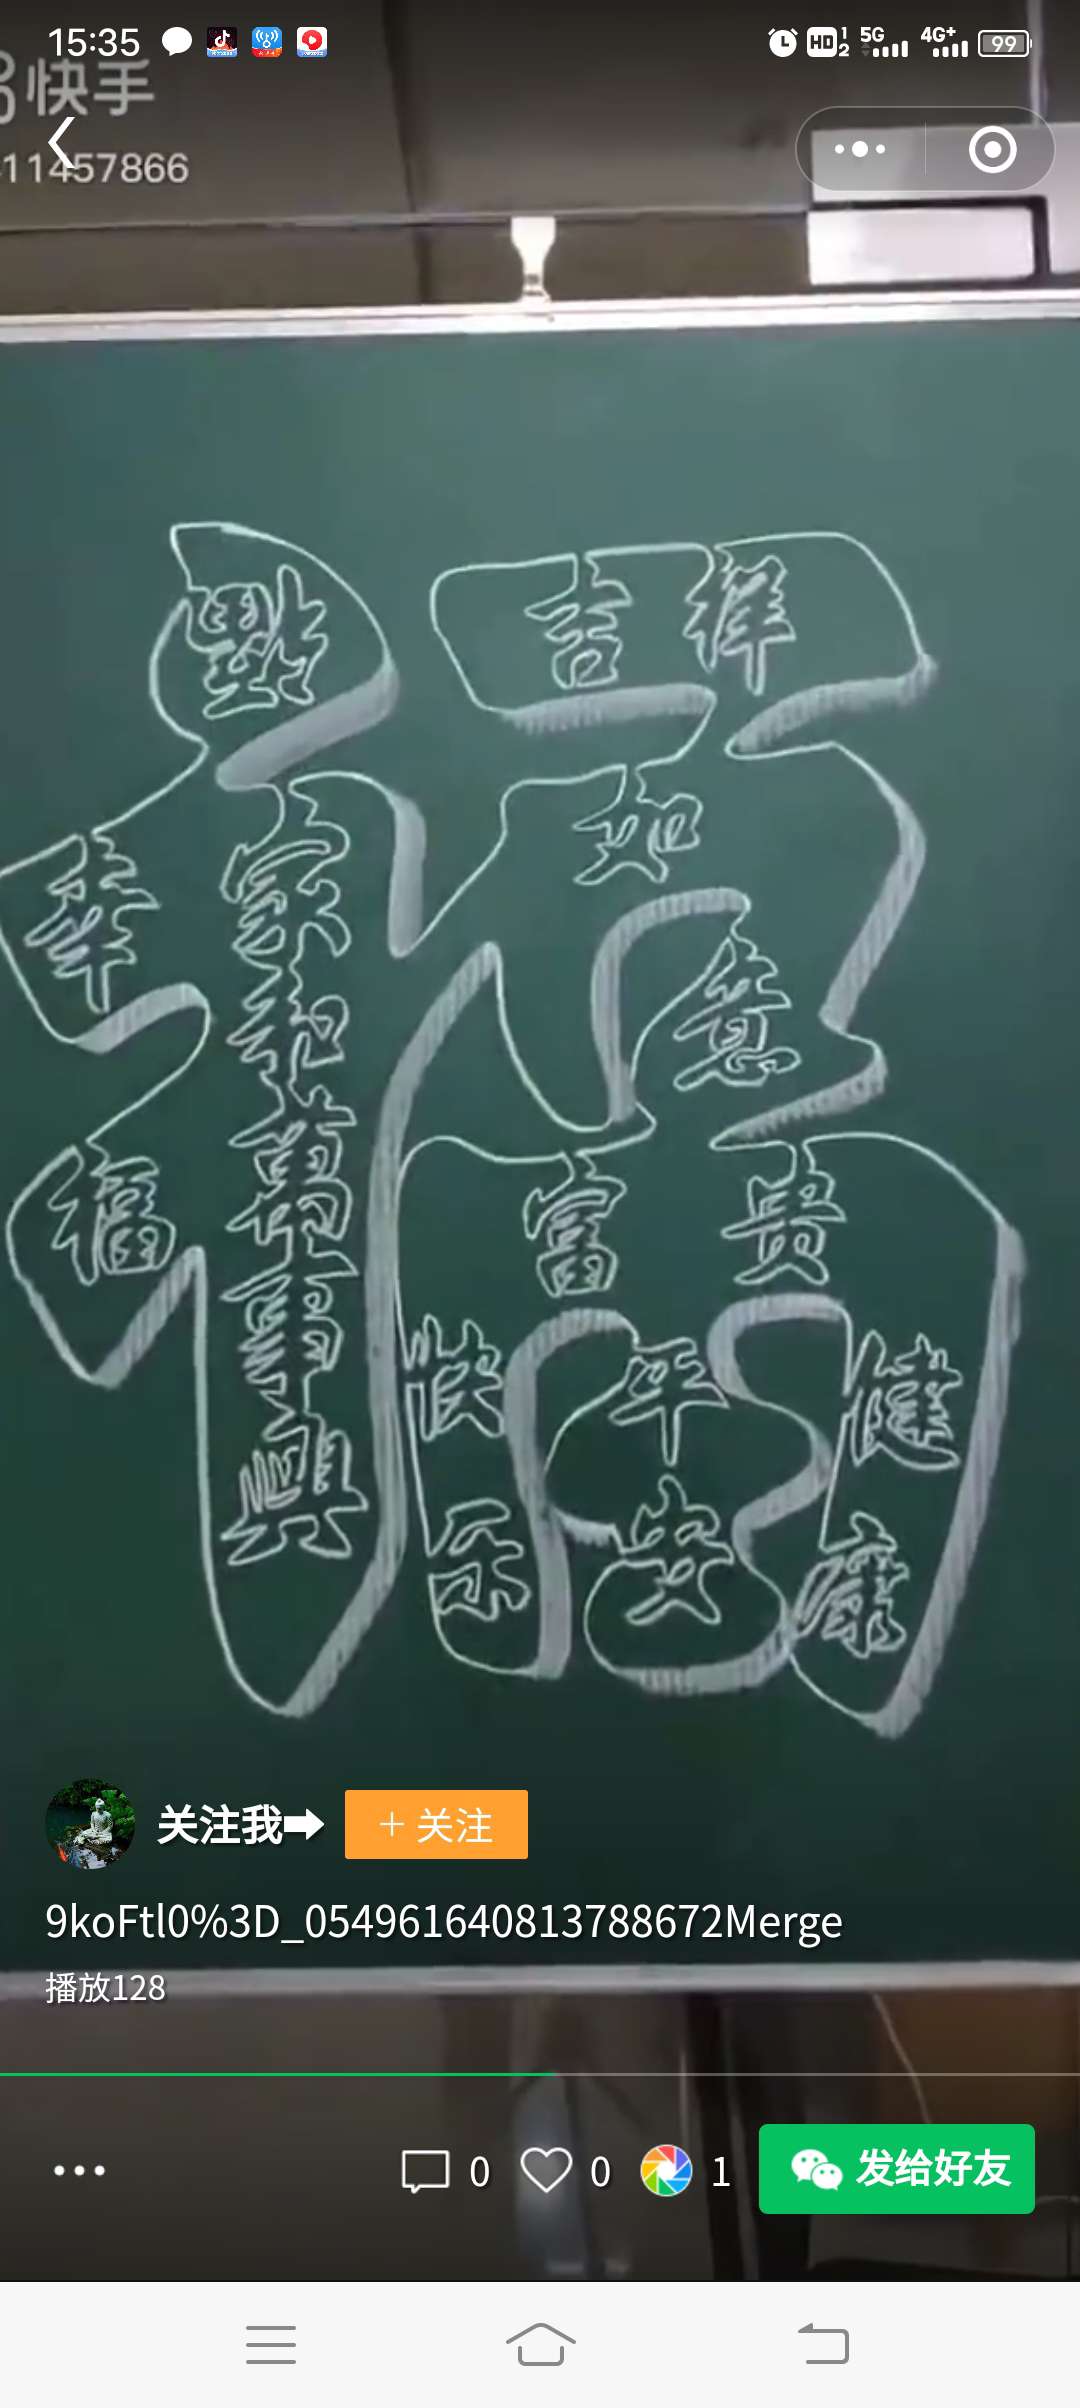 15:35
HD 1 2 5G 4G+ 99
快手
11457866
吉祥
如
意
幸
福
家和萬事興
富贵
快乐
平安
健康
关注我
+ 关注
9koFtl0%3D_054961640813788672Merge
播放128
0
0
1
发给好友